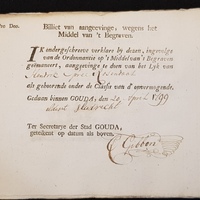 Pro Deo.
Billiet van aangeevinge, wegens het
Middel van 't Begraven.
IK ondergeschreeve verklare by dezen, ingevolge
van de Ordonnantie op 't Middel van 't Begraven
geëmaneert, aangevinge te doen van het Lyk van
als gehoorende onder de Classe van d' onvermogende.
Gedaan binnen GOUDA, den 20 April
Ter Secretarye der Stad GOUDA,
geteekent op datum als boven.